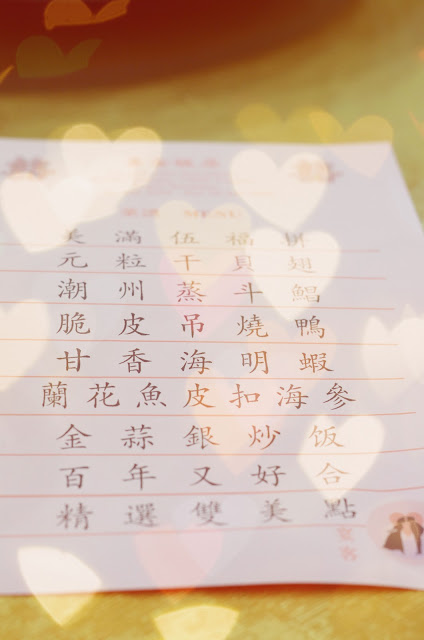 菜譜 MENU
美滿伍福拼
元粒干貝翅
潮州蒸斗鯧
脆皮吊燒鴨
甘香海明蝦
蘭花魚皮扣海參
金蒜銀炒饭
百年又好合
精選雙美點
宴客